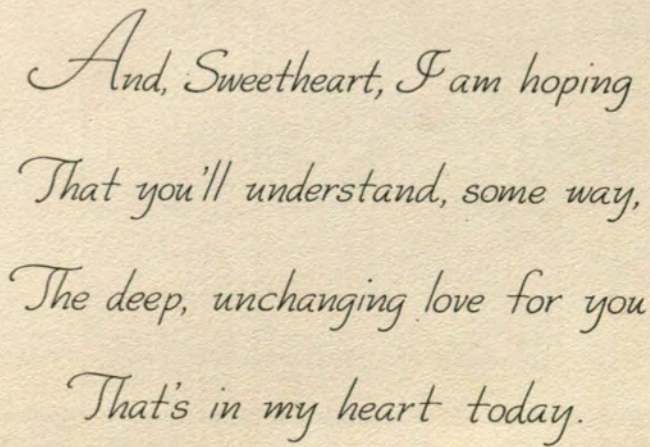 And, Sweetheart, I am hoping
That you'll understand, some way,
The deep, unchanging love for you
That's in my heart today.